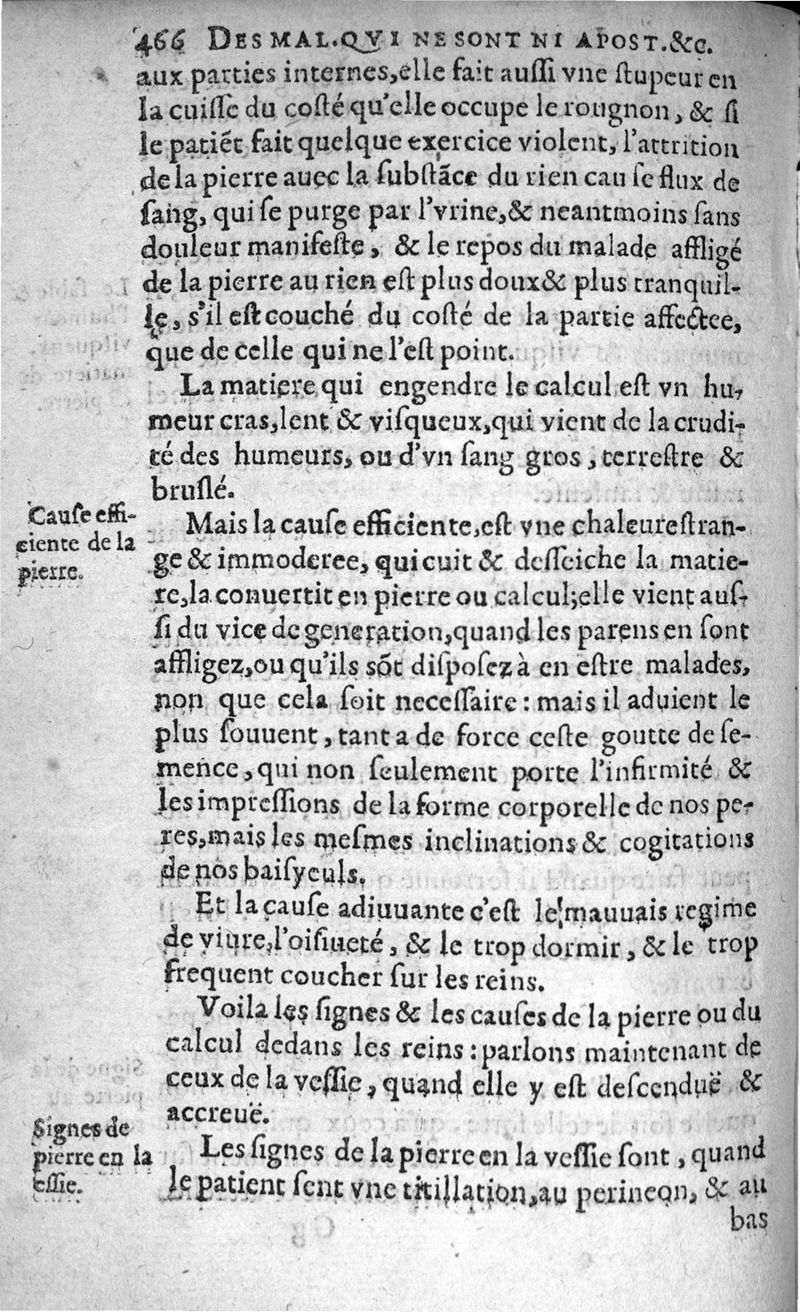 466 DES MAL. QVI NE SONT NI APOST. &c.
aux parties internes, elle fait auſſi vne ſtupeur en
la cuiſſe du coſté qu'elle occupe le rougnon, & ſi
le patiẽt fait quelque exercice violent, l'attrition
de la pierre auec la ſubſtãce du rien cau ſe flux de
ſang, qui ſe purge par l'vrine, & neantmoins ſans
douleur manifeſte, & le repos du malade affligé
de la pierre au rien eſt plus doux & plus tranquil-
le, s'il eſt couché du coſté de la partie affectee,
que de celle qui ne l'eſt point.
La matiere qui engendre le calcul eſt vn hu-
meur cras, lent & viſqueux, qui vient de la crudi-
té des humeurs, ou d'vn ſang gros, terreſtre &
bruſlé.
Cauſe effi-
ciente de la
pierre.
Mais la cauſe efficiente, eſt vne chaleur eſtran-
ge & immoderee, qui cuit & deſſeiche la matie-
re, la conuertit en pierre ou calcul; elle vient auſ-
ſi du vice de generation, quand les parens en ſont
affligez, ou qu'ils sõt diſpoſez à en eſtre malades,
non que cela ſoit neceſſaire : mais il aduient le
plus ſouuent, tant a de force ceſte goutte de ſe-
mence, qui non ſeulement porte l'infirmité &
les impreſſions de la forme corporelle de nos pe-
res, mais les meſmes inclinations & cogitations
de nos baiſyeuls.
Et la cauſe adiuuante c'eſt le mauuais regime
de viure, l'oiſiueté, & le trop dormir, & le trop
frequent coucher ſur les reins.
Voila les ſignes & les cauſes de la pierre ou du
calcul dedans les reins : parlons maintenant de
ceux de la veſſie, quand elle y eſt deſcenduë &
accreuë.
Signes de
pierre en la
eſſie.
Les ſignes de la pierre en la veſſie ſont, quand
le patient ſent vne titillation, au perineon, & au
bas